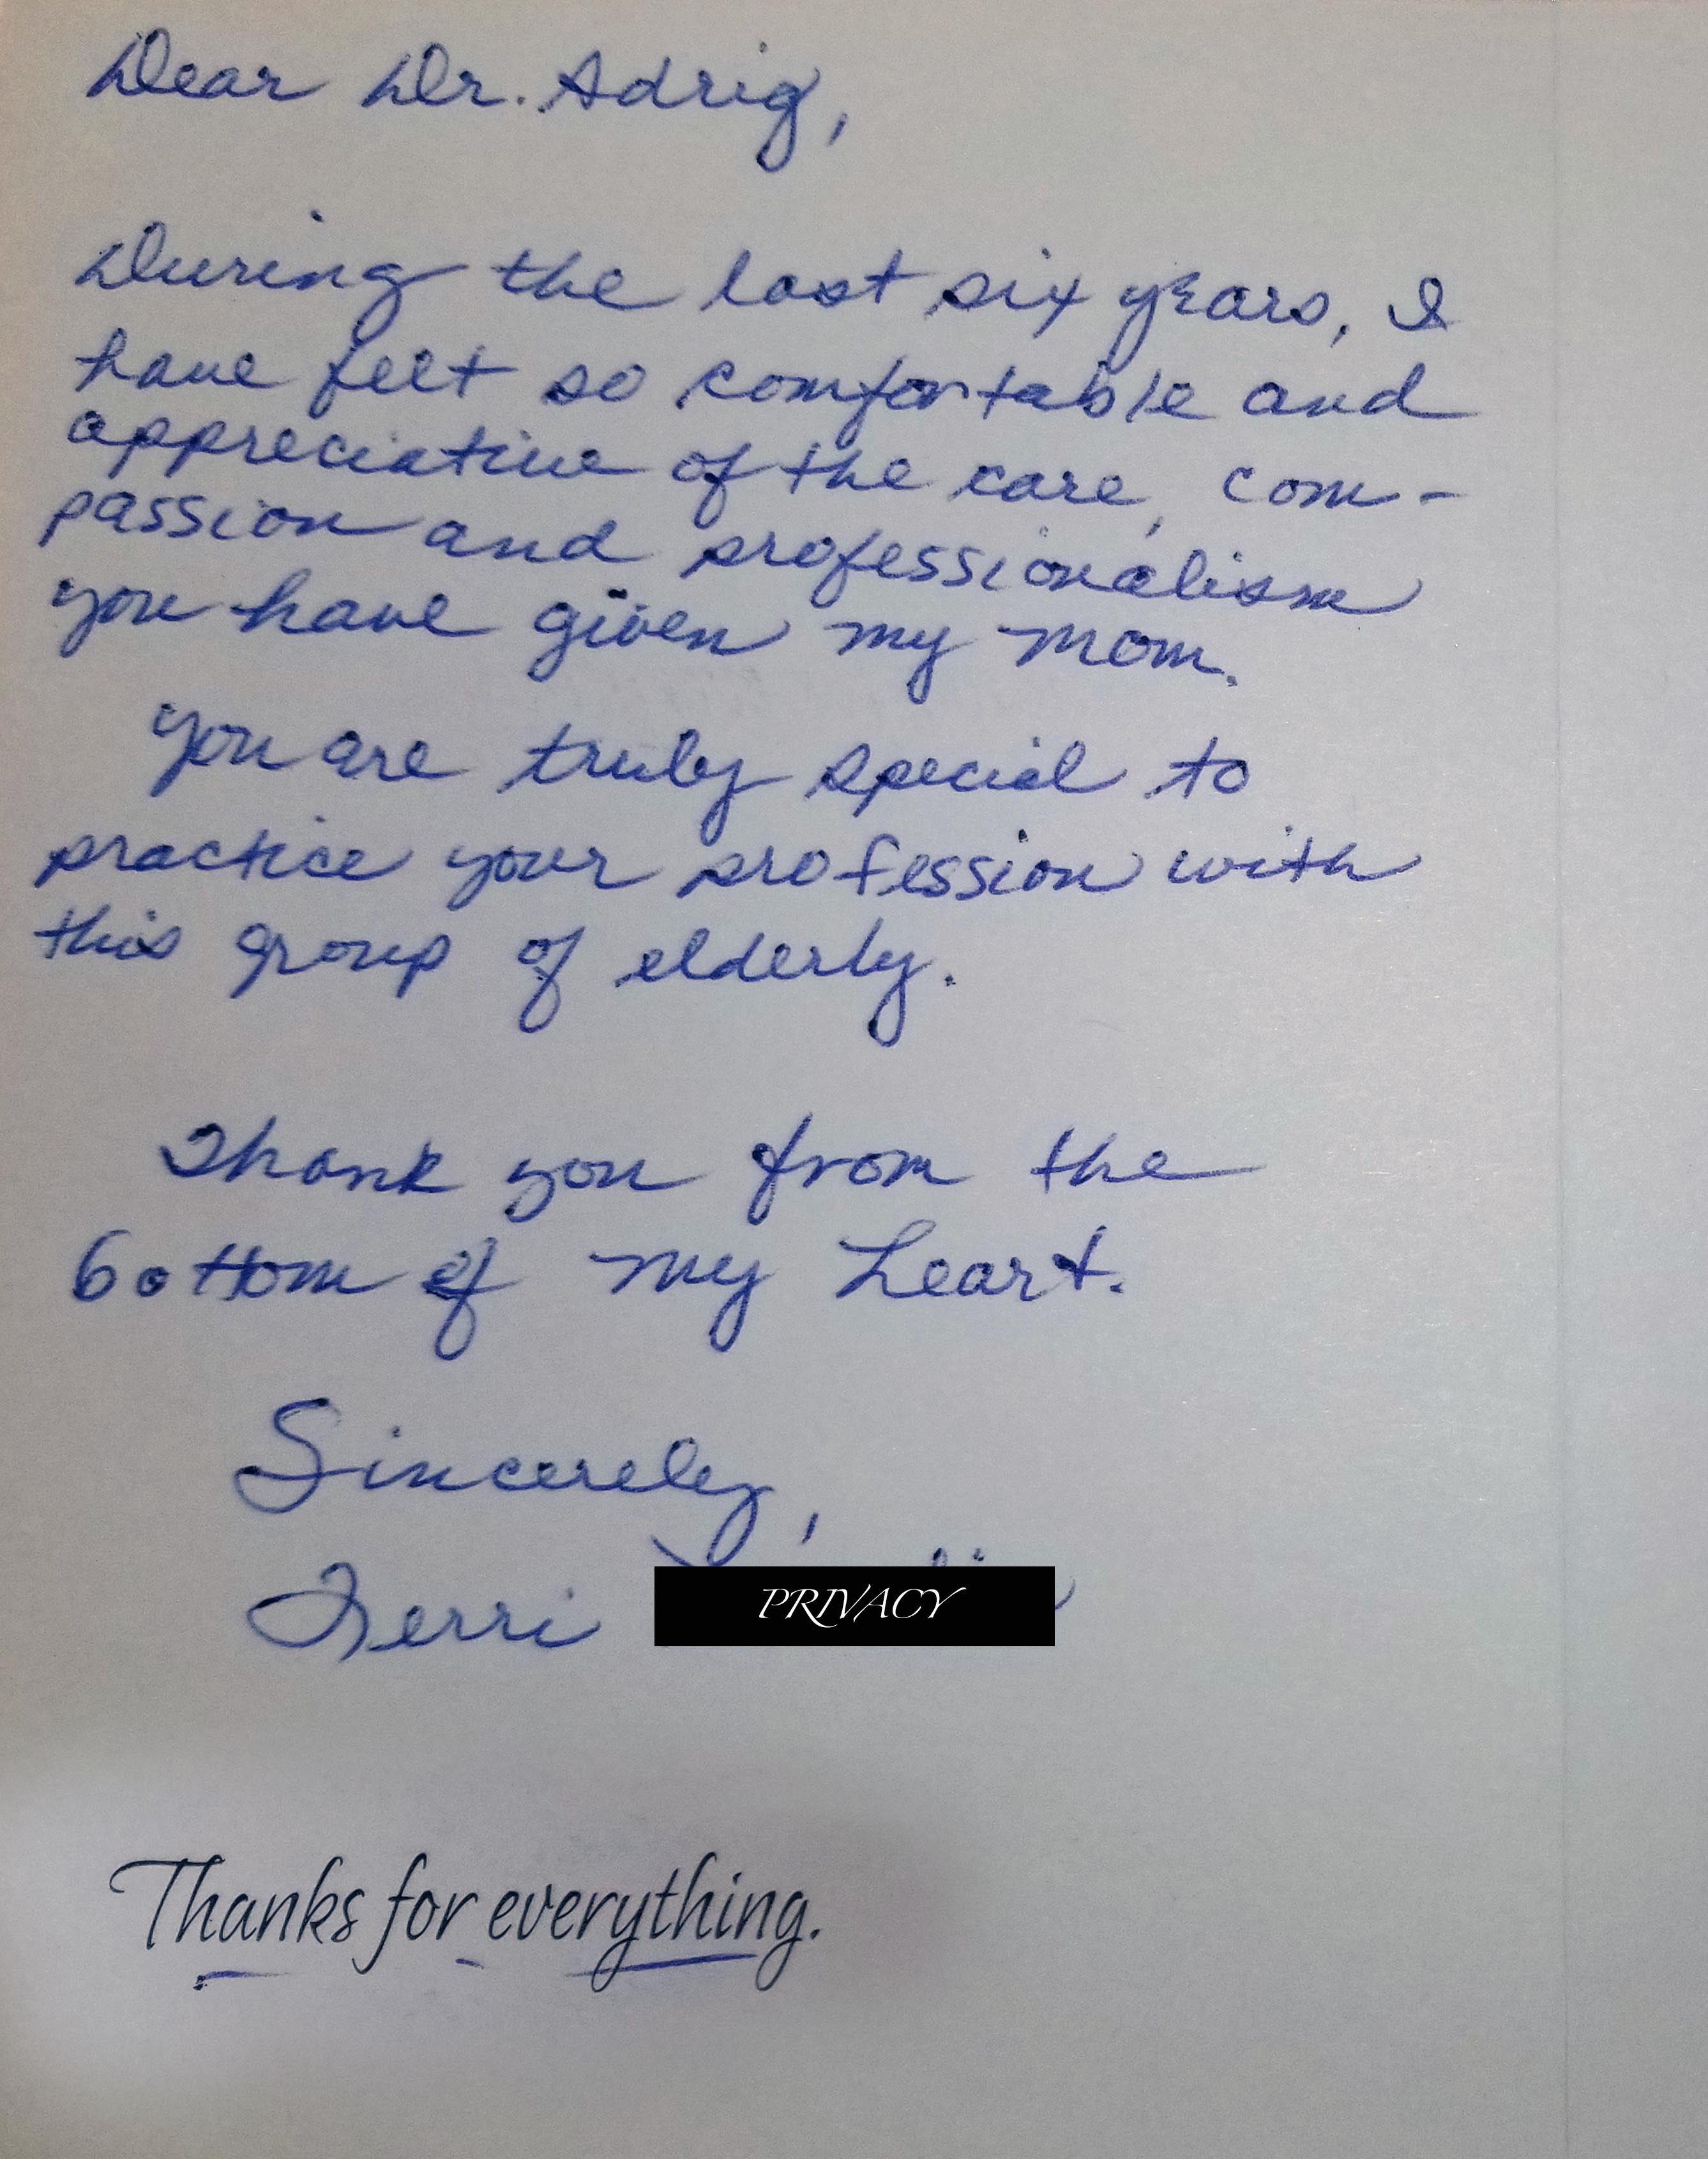 Dear Dr. Adrig,
During the last six years, I
have felt so comfortable and
appreciative of the care, com-
passion and professionalism
you have given my mom.
You are truly special to
practice your profession with
this group of elderly.
Thank you from the
bottom of my heart.
Sincerely,
Terri PRIVACY
Thanks for everything.